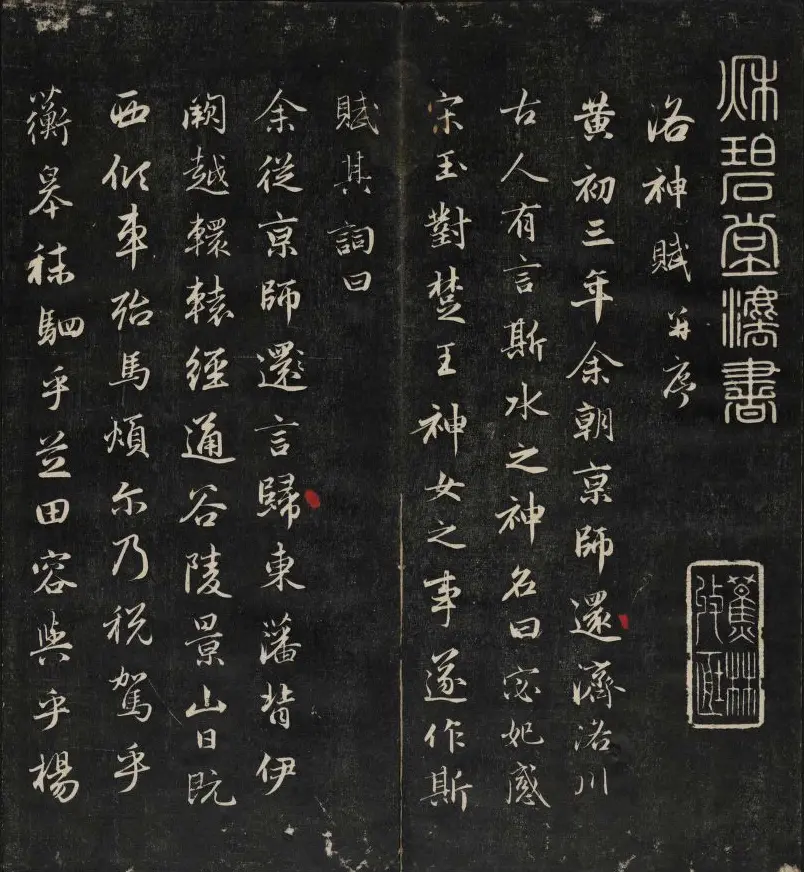 秌碧堂灋書
蕉林
收藏
洛神賦 并序
黄初三年余朝亰師還濟洛川
古人有言斯水之神名曰宓妃感
宋玉對楚王神女之事遂作斯
賦其詞曰
余從亰師還言歸東藩背伊
闕越轘轅經通谷陵景山日既
西傾車殆馬煩尓乃税駕乎
蘅皋秣駟乎芝田容與乎楊